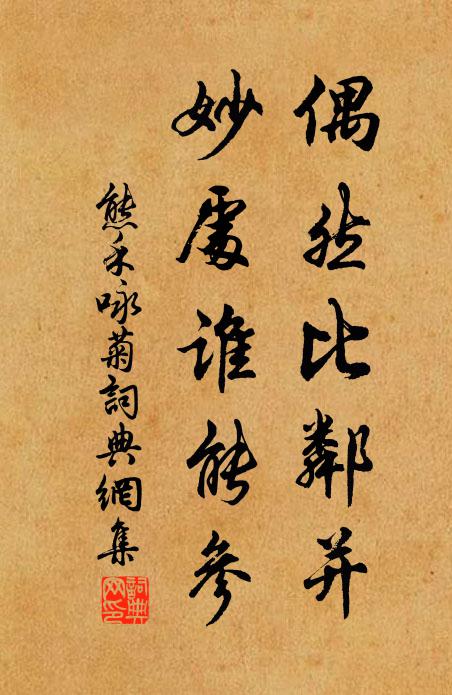 偶然比鄰并
妙處誰能參
熊禾咏菊詞典網集
詞典网印